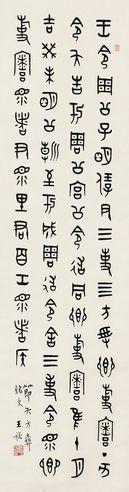 王令周公子明保尹三事四方受卿事寮丁亥
令矢告于周公宫公令徣同卿事寮隹十月月
吉癸未明公朝至于成周徣令舍三事令眔卿
事寮眔者尹眔里君眔百工眔者侯
節矢方彝
銘文 王